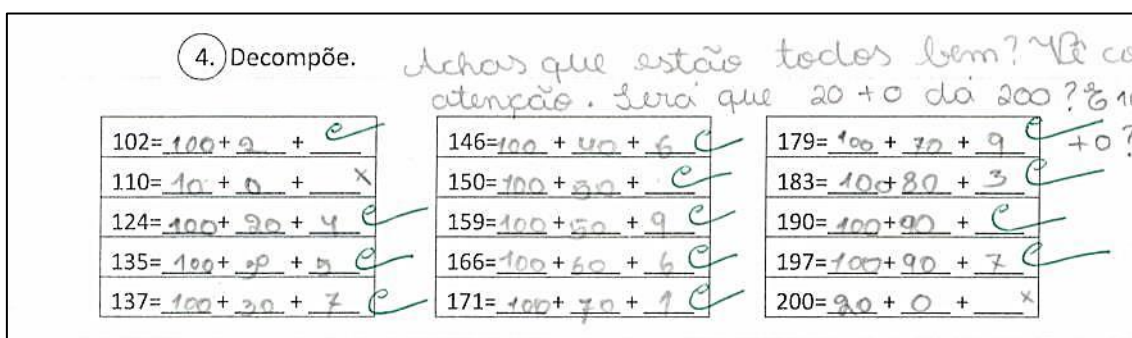 4. Decompõe. Achas que estão todos bem? Vê co
atenção. Será que 20 + 0 dá 200? E 10
+ 0?
102= 100+ 2 + ___ C
110= 10 + 0 + ___ x
124= 100+ 20 + 4 C
135= 100+ 30 + 5 C
137= 100+ 30 + 7 C
146= 100 + 40 + 6 C
150= 100 + 50 + ___ C
159= 100 + 50 + 9 C
166= 100 + 60 + 6 C
171= 100+ 70 + 1 C
179= 100 + 70 + 9 C
183= 100+ 80 + 3 C
190= 100+90 + ___ C
197= 100+ 90 + 7 C
200= 20 + 0 + ___ x